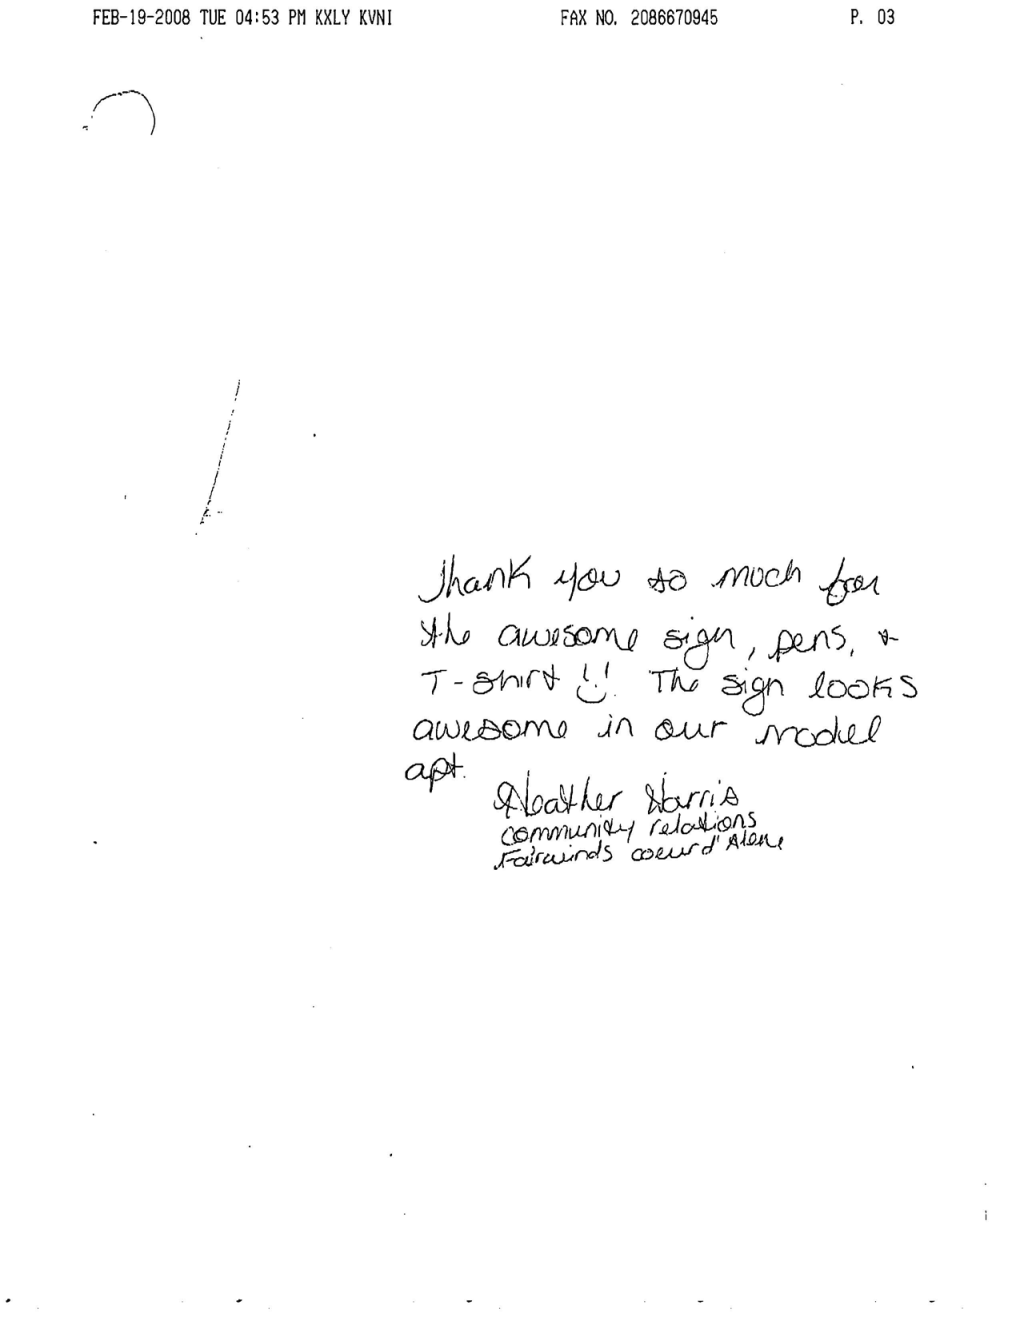 FEB-19-2008 TUE 04:53 PM KXLY KVNI FAX NO. 2086670945 P. 03
Thank you so much for
the awesome sign, pens, &
T-shirt !! The sign looks
awesome in our model
apt.
Heather Harris
community relations
Fairwinds coeur d'Alene